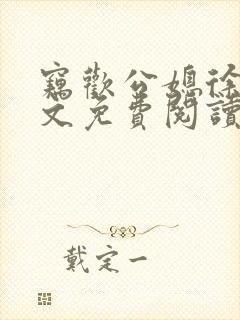 竊歡公媳徐
文免費閱讀
戴定一